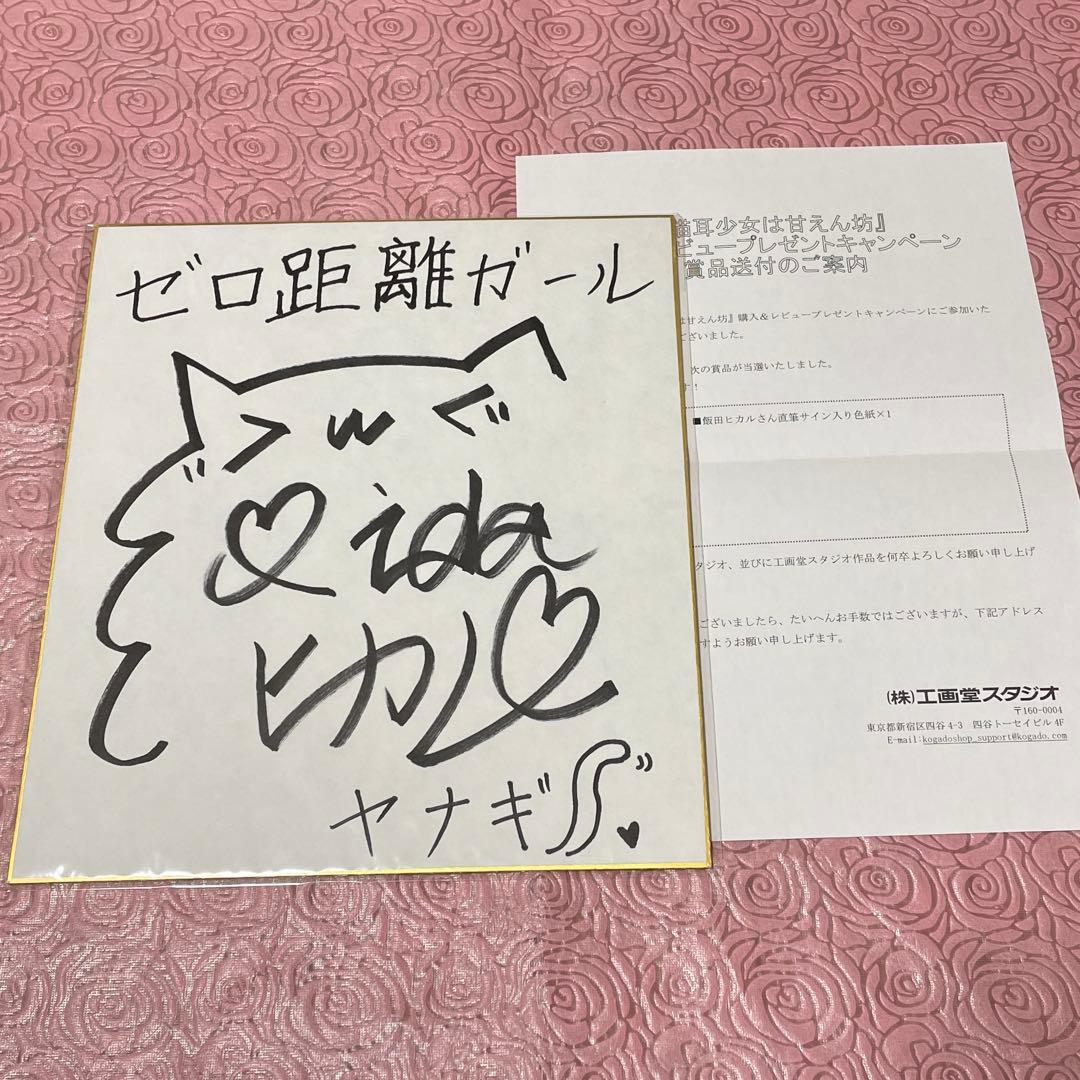 ゼロ距離ガール
ida
ヒカル
ヤナギ
猫耳少女は甘えん坊』
ビュープレゼントキャンペーン
賞品送付のご案内
は甘えん坊』購入&レビュープレゼントキャンペーンにご参加いた
ございました。
次の賞品が当選いたしました。
す!
■飯田ヒカルさん直筆サイン入り色紙×1
タジオ、並びに工画堂スタジオ作品を何卒よろしくお願い申し上げ
ございましたら、たいへんお手数ではございますが、下記アドレス
すようお願い申し上げます。
(株)工画堂スタジオ
〒160-0004
東京都新宿区四谷4-3 四谷トーセイビル4F
E-mail:kogadoshop_support@kogado.com